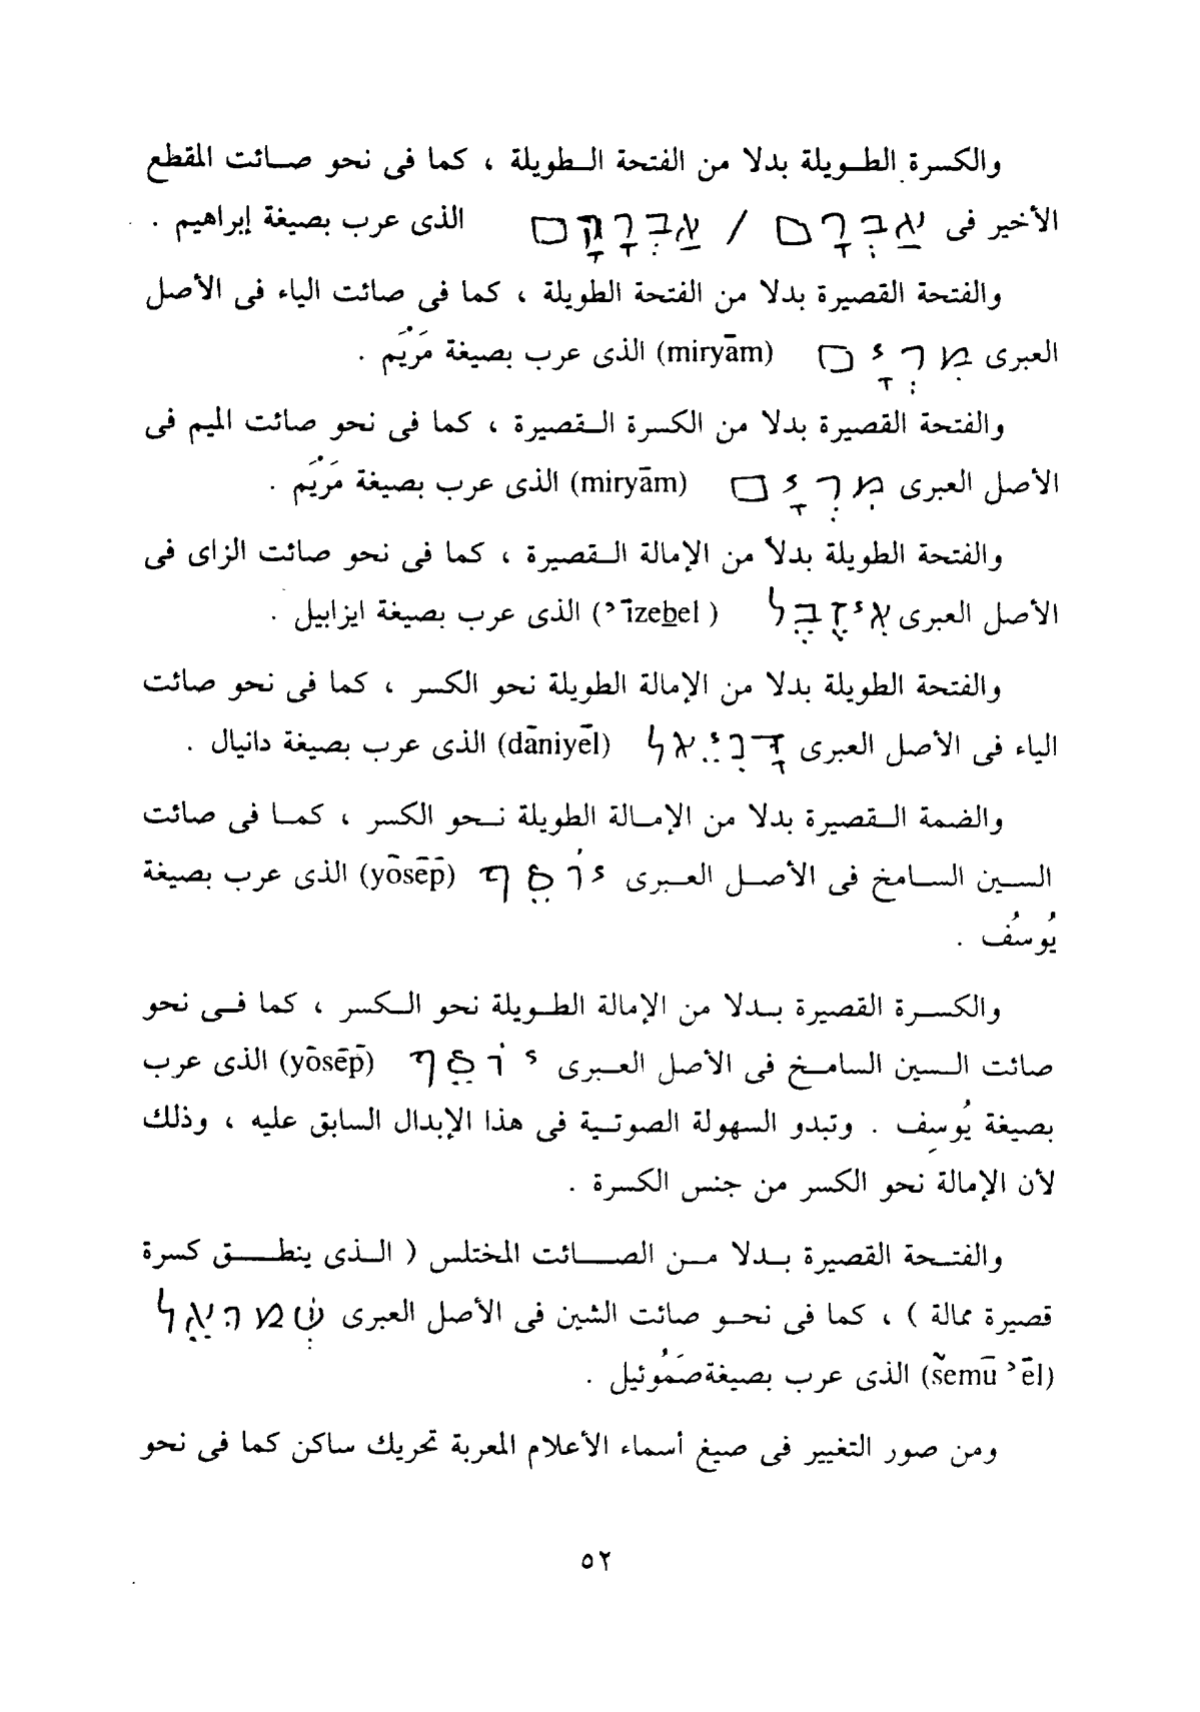 والكسرة الطويلة بدلا من الفتحة الطويلة ، كما فى نحو صائت المقطع
الأخير فى אַבְרָם / אַבְרָהָם الذى عرب بصيغة إبراهيم .
والفتحة القصيرة بدلا من الفتحة الطويلة ، كما فى صائت الياء فى الأصل
العبرى מִרְיָם (miryām) الذى عرب بصيغة مَرْيَم .
والفتحة القصيرة بدلا من الكسرة القصيرة ، كما فى نحو صائت الميم فى
الأصل العبرى מִרְיָם (miryām) الذى عرب بصيغة مَرْيَم .
والفتحة الطويلة بدلاً من الإمالة القصيرة ، كما فى نحو صائت الزاى فى
الأصل العبرى אִיזֶבֶל ( ʾīzeḇel) الذى عرب بصيغة ايزابيل .
والفتحة الطويلة بدلا من الإمالة الطويلة نحو الكسر ، كما فى نحو صائت
الياء فى الأصل العبرى דָּנִיֵּאל (dāniyēl) الذى عرب بصيغة دانيال .
والضمة القصيرة بدلا من الإمالة الطويلة نحو الكسر ، كما فى صائت
السين السامخ فى الأصل العبرى יֹוסֵף (yōsēp̄) الذى عرب بصيغة
يُوسُف .
والكسرة القصيرة بدلا من الإمالة الطويلة نحو الكسر ، كما فى نحو
صائت السين السامخ فى الأصل العبرى יֹוסֵף (yōsēp̄) الذى عرب
بصيغة يُوسِف . وتبدو السهولة الصوتية فى هذا الإبدال السابق عليه ، وذلك
لأن الإمالة نحو الكسر من جنس الكسرة .
والفتحة القصيرة بدلا من الصائت المختلس ( الذى ينطق كسرة
قصيرة ممالة ) ، كما فى نحو صائت الشين فى الأصل العبرى
(šemū ʾēl) الذى عرب بصيغة صَمُوئيل .
ومن صور التغيير فى صيغ أسماء الأعلام المعربة تحريك ساكن كما فى نحو
٥٢